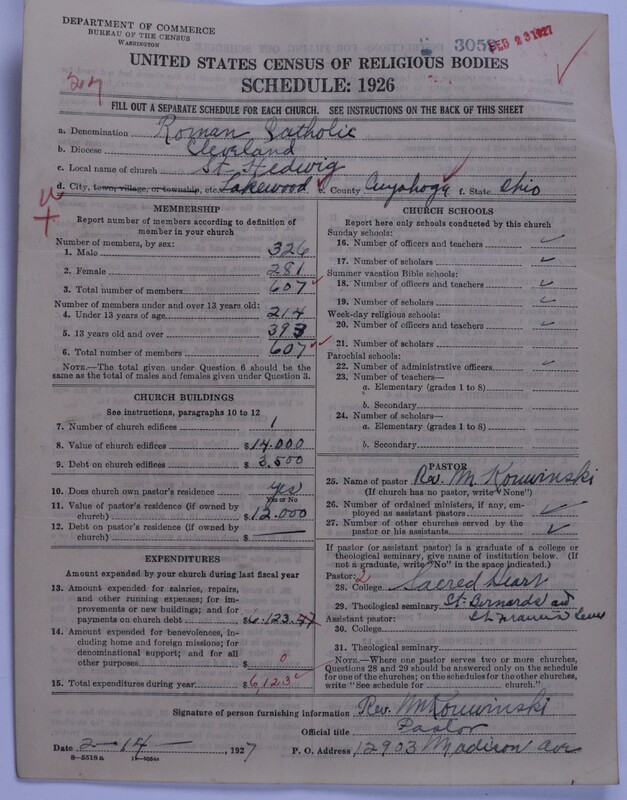 DEPARTMENT OF COMMERCE
BUREAU OF THE CENSUS
WASHINGTON
3058
FEB 23 1927
UNITED STATES CENSUS OF RELIGIOUS BODIES
SCHEDULE: 1926
FILL OUT A SEPARATE SCHEDULE FOR EACH CHURCH. SEE INSTRUCTIONS ON THE BACK OF THIS SHEET
a. Denomination Roman Catholic
b. Diocese Cleveland
c. Local name of church St. Hedwig
d. City, town, village, or township, etc. Lakewood e. County Cuyahoga f. State Ohio
MEMBERSHIP
Report number of members according to definition of
member in your church
Number of members, by sex:
1. Male 326
2. Female 281
3. Total number of members 607
Number of members under and over 13 years old:
4. Under 13 years of age 214
5. 13 years old and over 393
6. Total number of members 607
NOTE.—The total given under Question 6 should be
the same as the total of males and females given under Question 3.
CHURCH BUILDINGS
See instructions, paragraphs 10 to 12
7. Number of church edifices 1
8. Value of church edifices $14.000
9. Debt on church edifices $3.500
10. Does church own pastor's residence Yes
Yes or No
11. Value of pastor's residence (if owned by
church) $12.000
12. Debt on pastor's residence (if owned by
church) $
EXPENDITURES
Amount expended by your church during last fiscal year
13. Amount expended for salaries, repairs,
and other running expenses; for im-
provements or new buildings; and for
payments on church debt $6.123.47
14. Amount expended for benevolences, in-
cluding home and foreign missions; for
denominational support; and for all
other purposes $ 0
15. Total expenditures during year $6,123
CHURCH SCHOOLS
Report here only schools conducted by this church
Sunday schools:
16. Number of officers and teachers
17. Number of scholars
Summer vacation Bible schools:
18. Number of officers and teachers
19. Number of scholars
Week-day religious schools:
20. Number of officers and teachers
21. Number of scholars
Parochial schools:
22. Number of administrative officers
23. Number of teachers—
a. Elementary (grades 1 to 8)
b. Secondary
24. Number of scholars—
a. Elementary (grades 1 to 8)
b. Secondary
PASTOR
25. Name of pastor Rev. M. Kouwinski
(If church has no pastor, write "None")
26. Number of ordained ministers, if any, em-
ployed as assistant pastors
27. Number of other churches served by the
pastor or his assistants
If pastor (or assistant pastor) is a graduate of a college or
theological seminary, give name of institution below. (If
not a graduate, write "No" in the space indicated.)
Pastor: 2
28. College Sacred Heart
29. Theological seminary St. Bernards and
Assistant pastor: St. Francis
30. College
31. Theological seminary
NOTE.—Where one pastor serves two or more churches,
Questions 28 and 29 should be answered only on the schedule
for one of the churches; on the schedules for the other churches,
write "See schedule for church."
Signature of person furnishing information Rev. M Kouwinski
Official title Pastor
Date 2-14-, 1927 P. O. Address 12903 Madison Ave
8-5518a